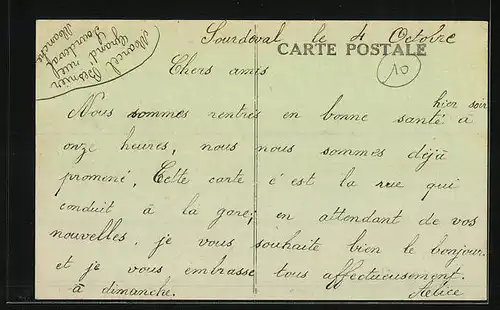 Marcel Besnier
Grand' rue
Sourdeval
Manche
Sourdeval le 4 Octobre
CARTE POSTALE
10
Chers amis
hier soir
Nous sommes rentrés en bonne santé à
onze heures, nous nous sommes déjà
promené, Cette carte c'est la rue qui
conduit à la gare; en attendant de vos
nouvelles, je vous souhaite bien le bonjour.
et je vous embrasse tous affectueusement.
à dimanche. Aelice